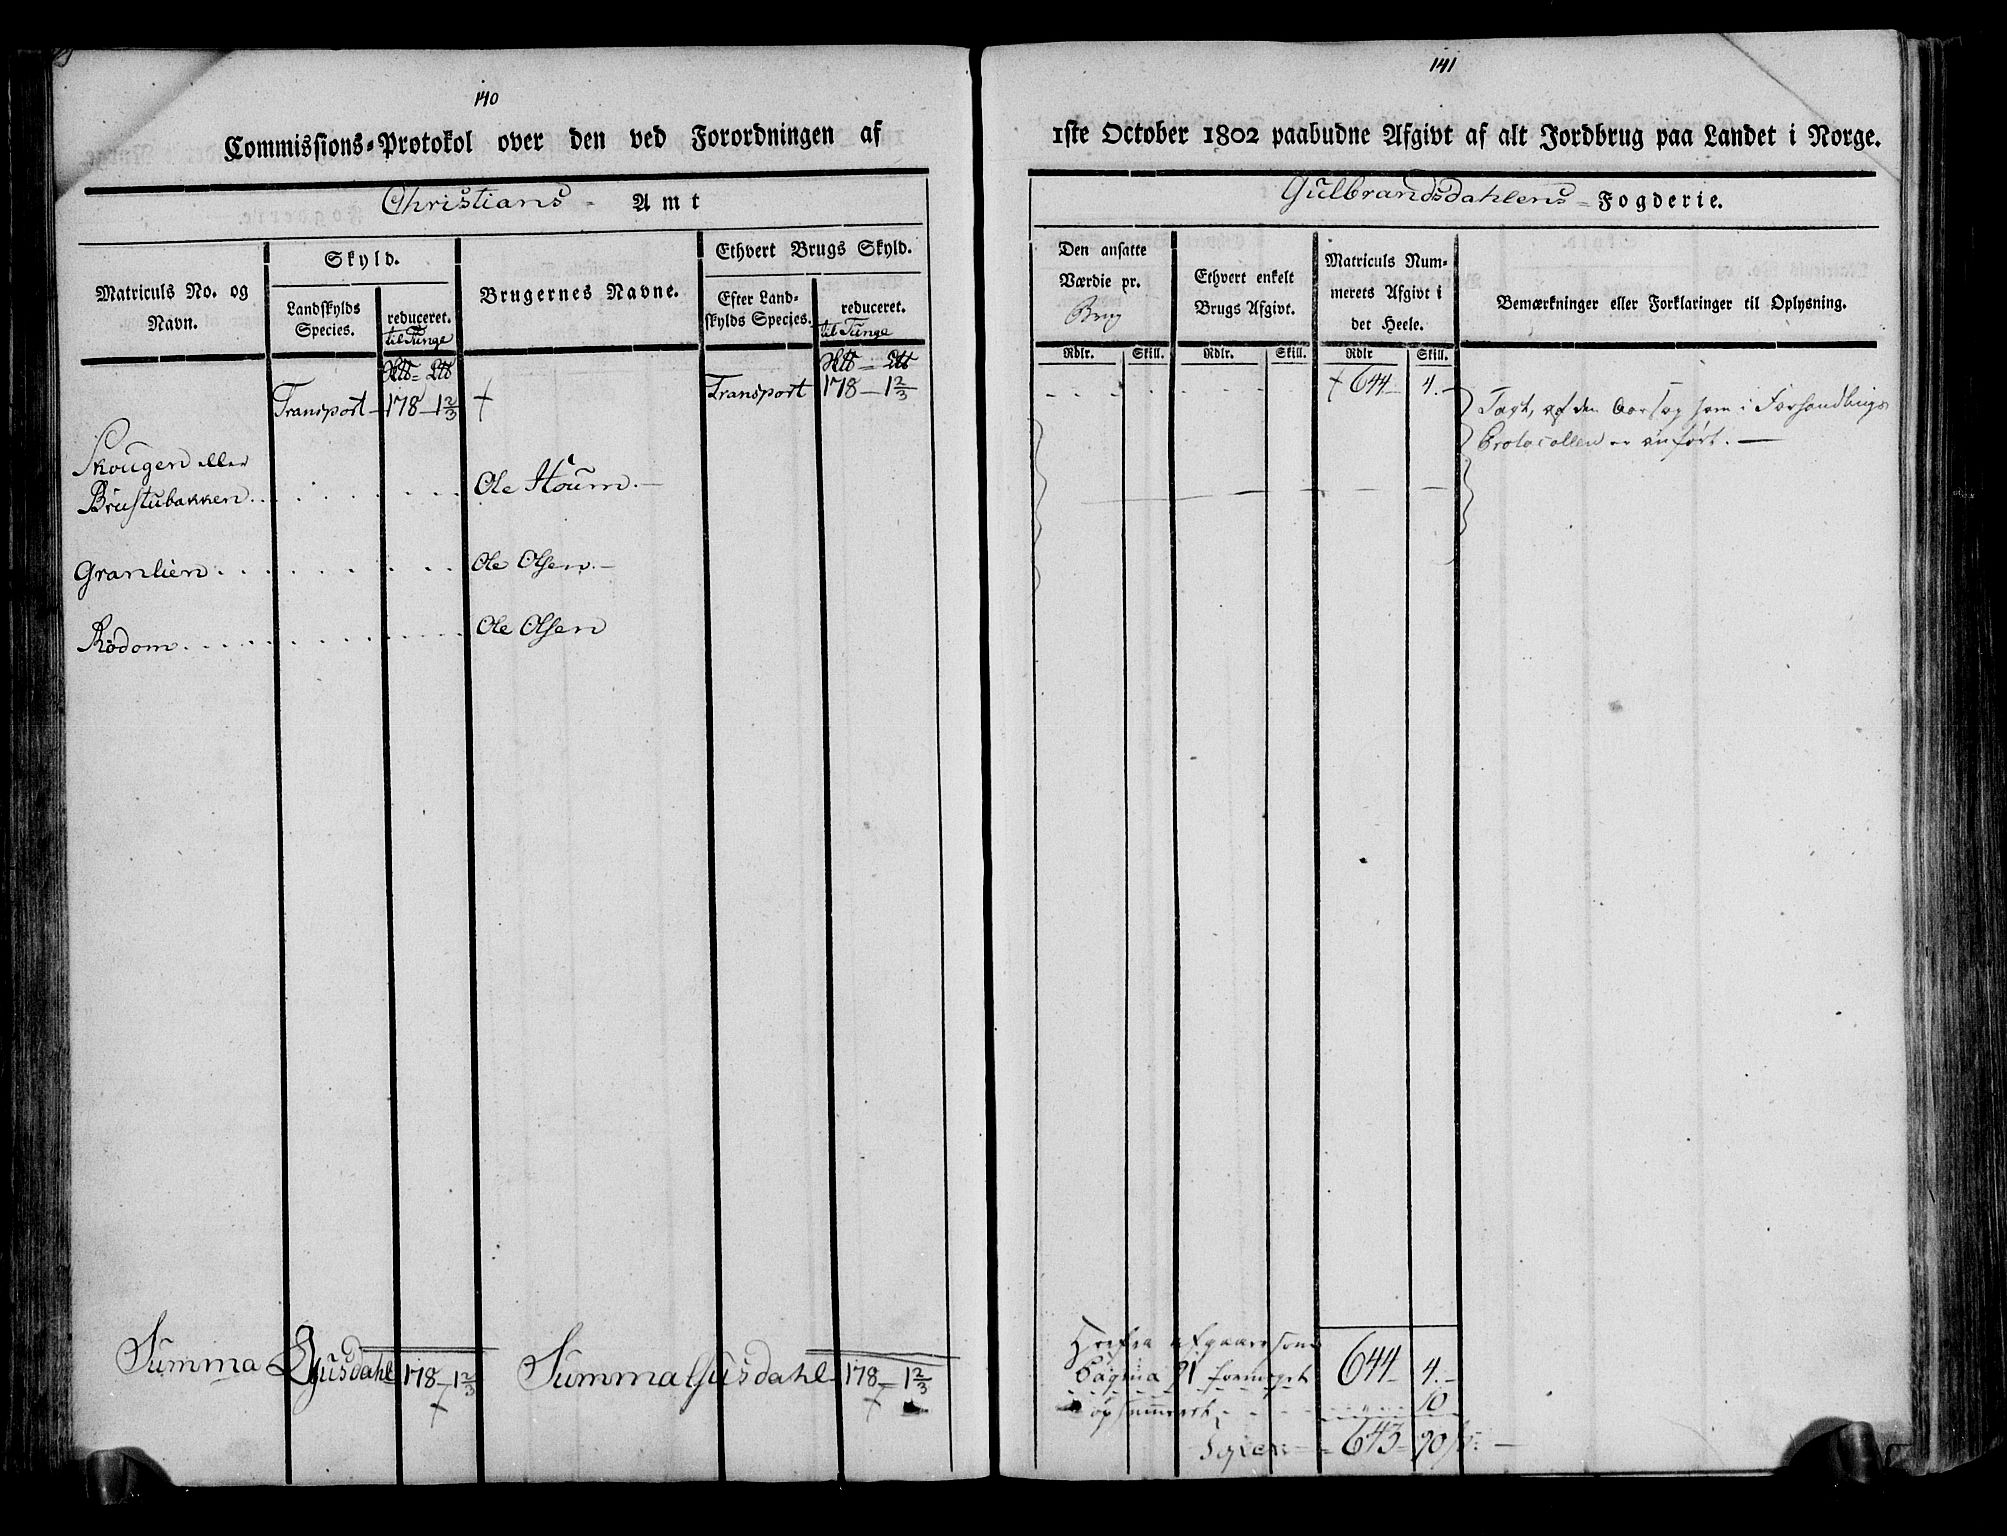 140
Commissions-Protokol over den ved Forordningen af
Christians Amt
Matriculs No. og Navn.
Skyld.
Landskylds Species.
reduceret.
til Tunge
Brugernes Navne.
Ethvert Brugs Skyld.
Efter Landskylds Species.
reduceret.
til Tunge
Transport 178 - 1 2/3 Transport 178 - 1 2/3
Skougen eller
Brustubakken Ole Houm.
Granlien Ole Olsen.
Rødom Ole Olsen
Summa Gusdahl 178 - 1 2/3 Summa Gusdahl 178 - 1 2/3
141
1ste October 1802 paabudne Afgivt af alt Jordbrug paa Landet i Norge.
Gulbrandsdahlens Fogderie.
Den ansatte Værdie pr.
Brug
Ethvert enkelt Brugs Afgivt.
Matriculs Nummerets Afgivt i det Heele.
Bemærkninger eller Forklaringer til Oplysning.
Rdlr. Skill. Rdlr. Skill. Rdlr Skill.
644 4.
af den som i Forhandlings
Protocollen er anført.
Herfra afgaar som
Pagina 91 644 4.
10
643 90